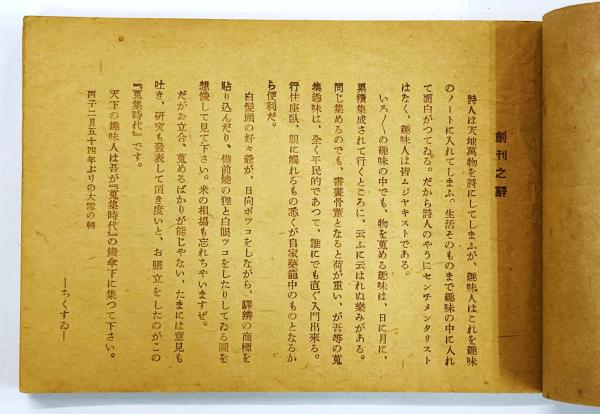 創刊之辭
詩人は天地萬物を詩にしてしまふが、趣味人はこれを趣味
のノートに入れてしまふ。生活そのものまで趣味の中に入れ
て面白がつてゐる。だから詩人のやうにセンチメンタリスト
はなく、趣味人は皆ムジヤキストである。
いろ〱の趣味の中でも、物を蒐める趣味は、日に月に、
累積集成されて行くところに、云ふに云はれぬ樂みがある。
同じ集めるのでも、書畫骨董となると荷が重い、が吾等の蒐
集趣味は、全く平民的であつて、誰にでも直ぐ入門出來る。
行住座臥、眼に觸れるもの悉くが自家藥籠中のものとなるか
ら便利だ。
白髮頭の好々爺が、日向ボツコをしながら、驛辨の商標を
貼り込んだり、備前燒の狸と白眼ツコをしたりしてゐる圖を
想像して見て下さい。米の相場も忘れちやいますぜ。
だがお立合、蒐めるばかりが能じやない、たまには意見も
吐き、研究も發表して頂き度いと、お膳立をしたのがこの
『蒐集時代』です。
天下の趣味人は吾が『蒐集時代』の傘下に集つて下さい。
丙子二月五十四年ぶりの大雪の朝
―ちくすゐ―